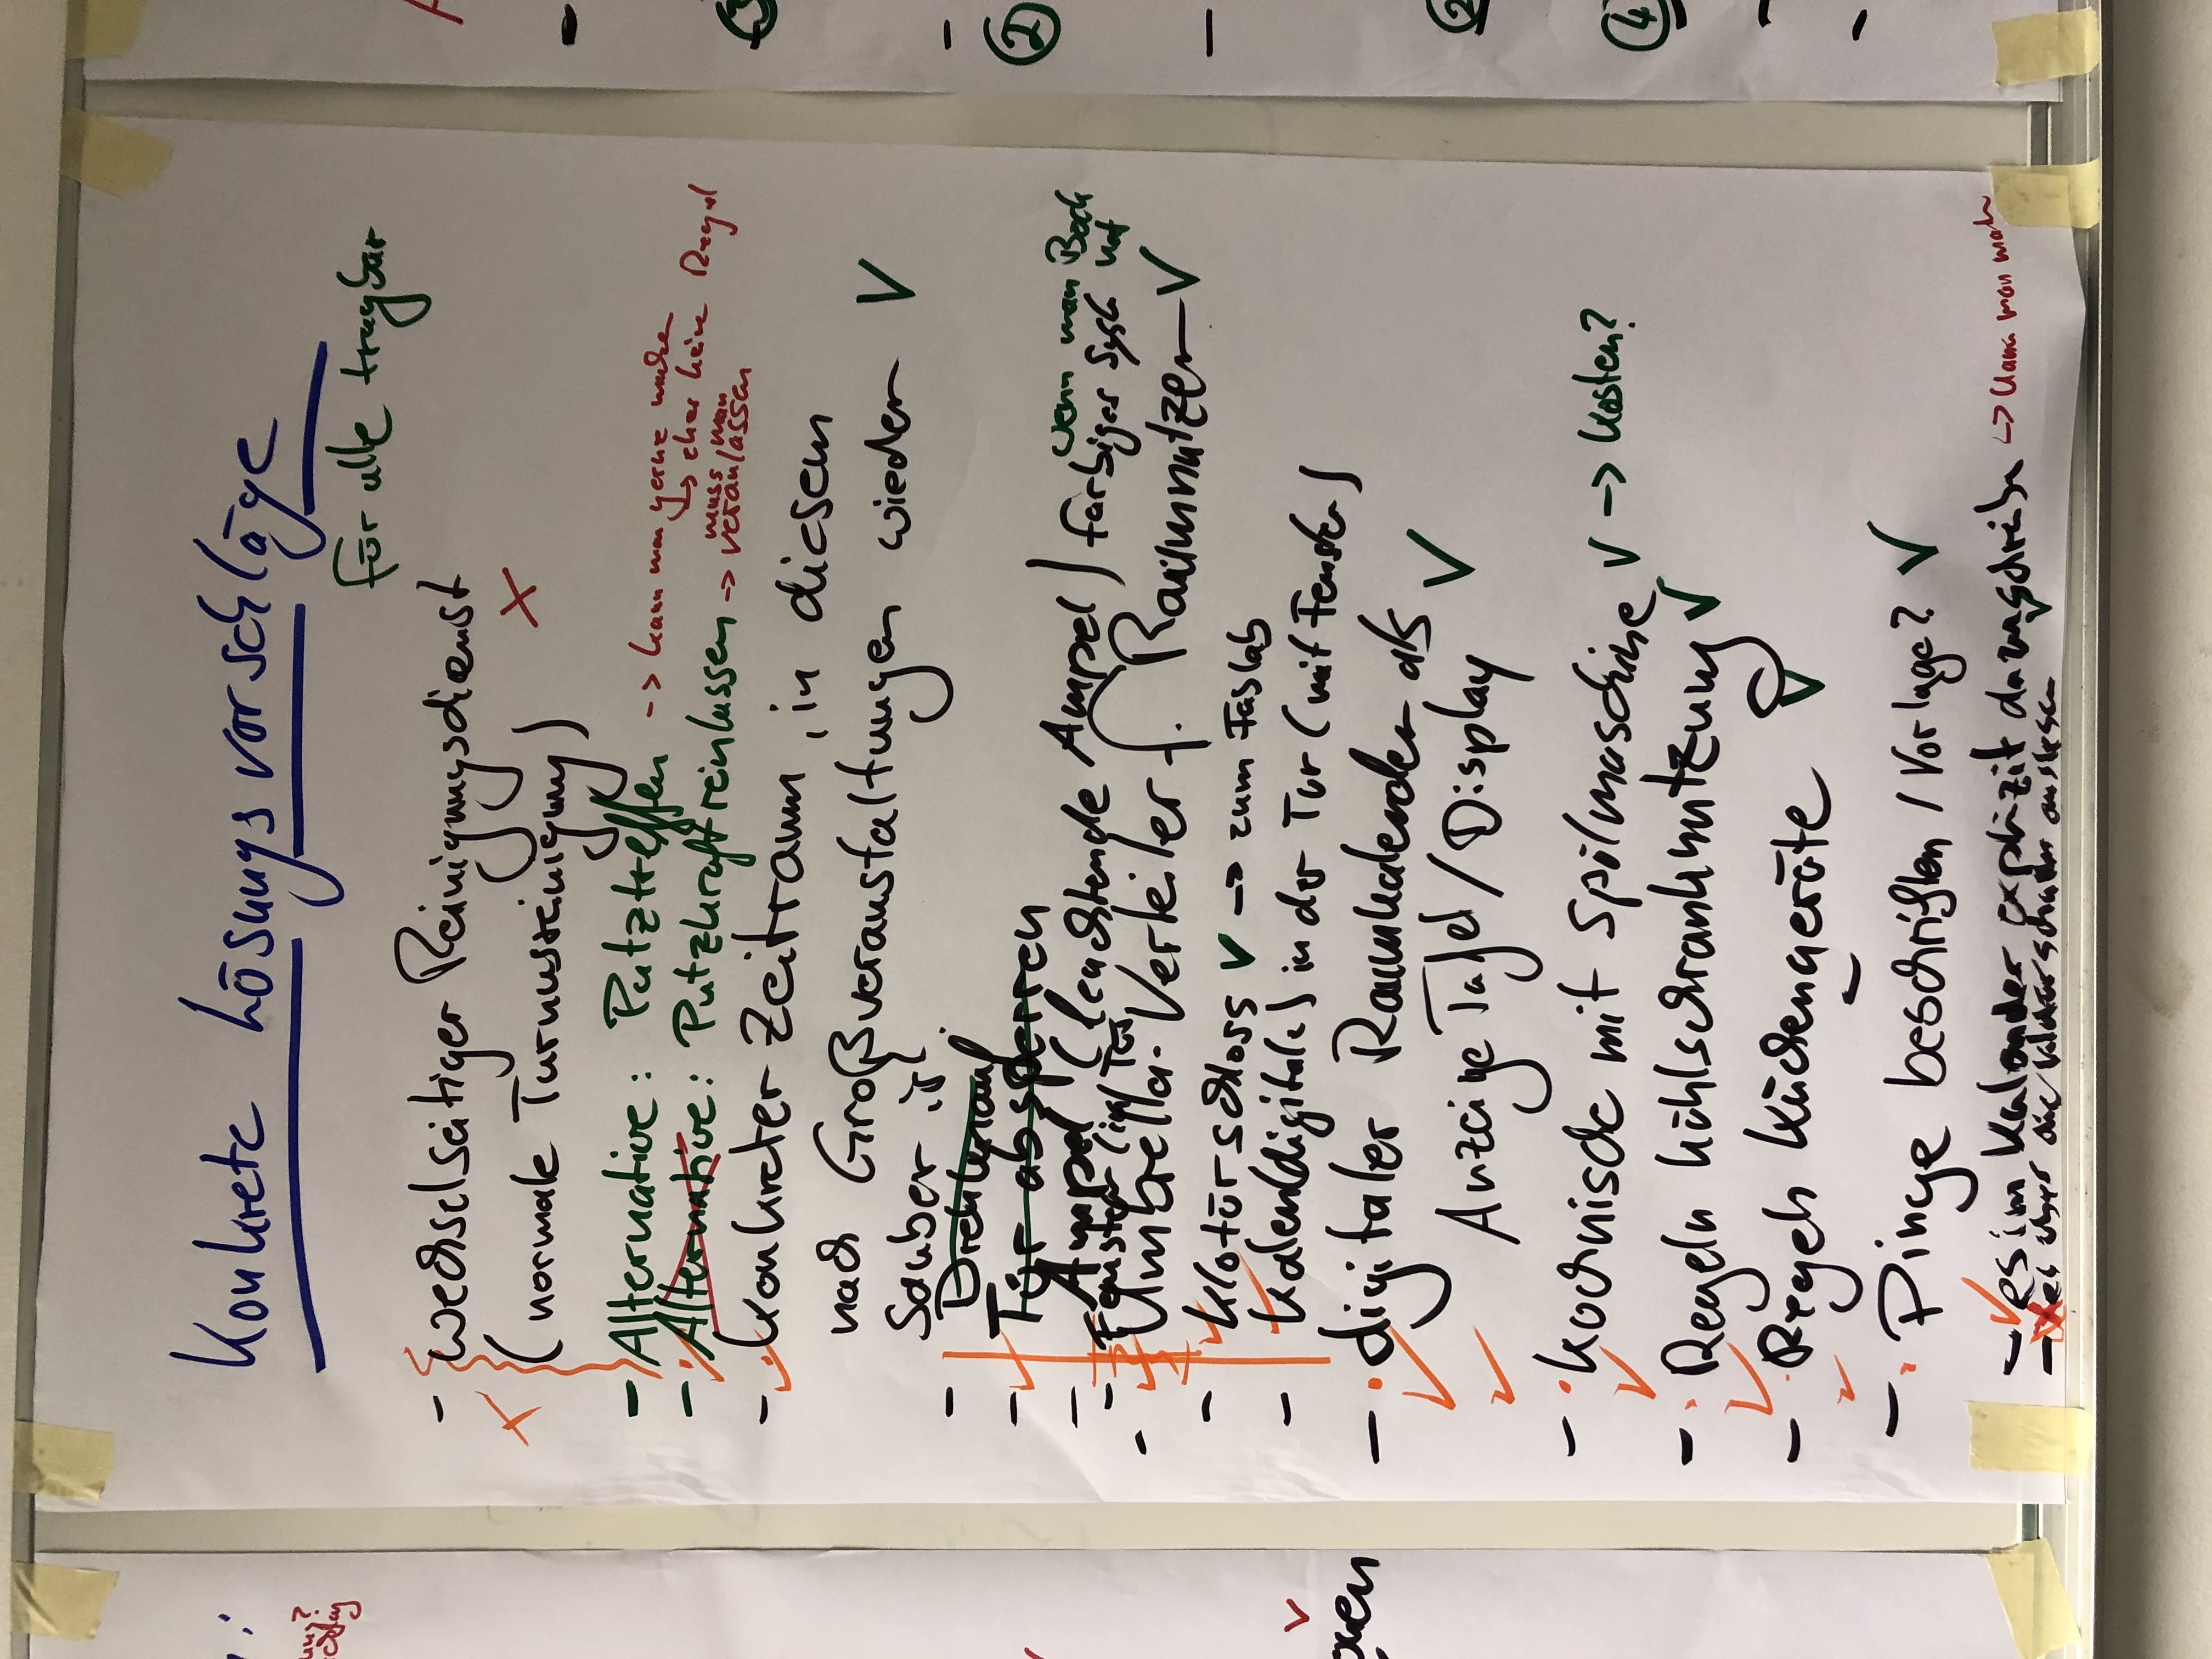 Konkrete Lösungsvorschläge
für alle tragbar
- wechselseitiger Reinigungsdienst
(normale Turnusreinigung) X
- Alternative: Putztreffen -> kann man gerne machen
-> eher keine Regel
- Alternative: Putzkraft reinlassen -> muss man
veranlassen
- konkreter Zeitraum, in diesem
nach Großveranstaltungen wieder V
sauber ist
- Drehknauf
- Tür absperren
- Ampel (leuchtende Ampel) farbiges wenn man Bock hat
- Fenster in Tür
- Umbrella. Verteiler f. Raumnutzer V
- Klotürschloss V -> zum Faslab
- Kalen(digitaler) in der Tür (mit Fenster)
- digitaler Raumkalender als
Anzeige Tafel / Display V
- Kochnische mit Spülmaschine V -> Kosten?
- Regeln Kühlschranknutzung V
- Regeln Küchengeräte V
- Dinge beschriften / Vorlage? V
- es im Kalender explizit dazuschreiben -> kann man machen